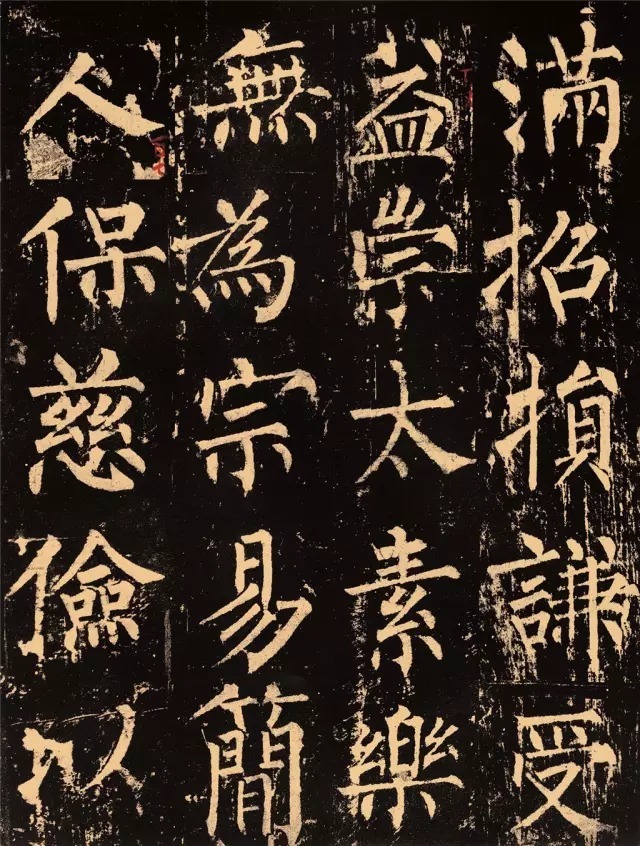 滿招損謙受
益崇太素樂
無為宗易簡
人保慈儉以